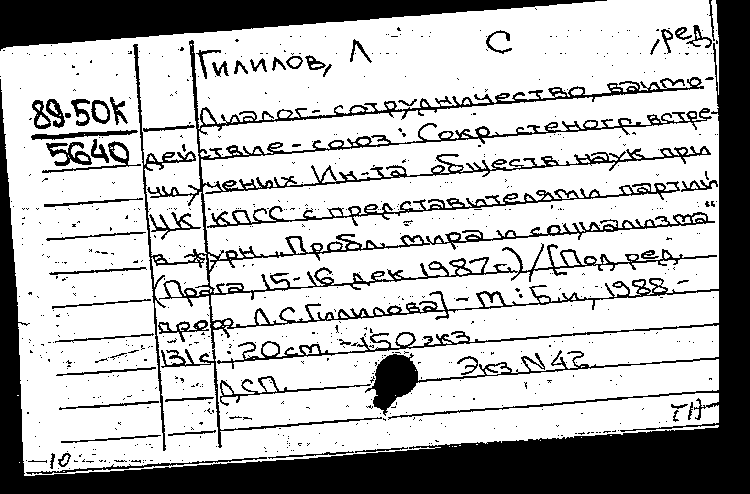 Гилилов, Л С , ред
89-50К
5640
Диалог - сотрудничество, взаимо-
действие - союз: Сокр. стеногр. встре-
чи ученых Ин-та обществ. наук при
ЦК КПСС с представителями партий
в журн. „Пробл. мира и социализма"
(Прага, 15-16 дек 1987г.) / [Под ред.
проф. Л.С.Гилилова]. - М.: Б.и., 1988. -
131 с.; 20 см. - 150 экз.
ДСП. Экз. N 42
10